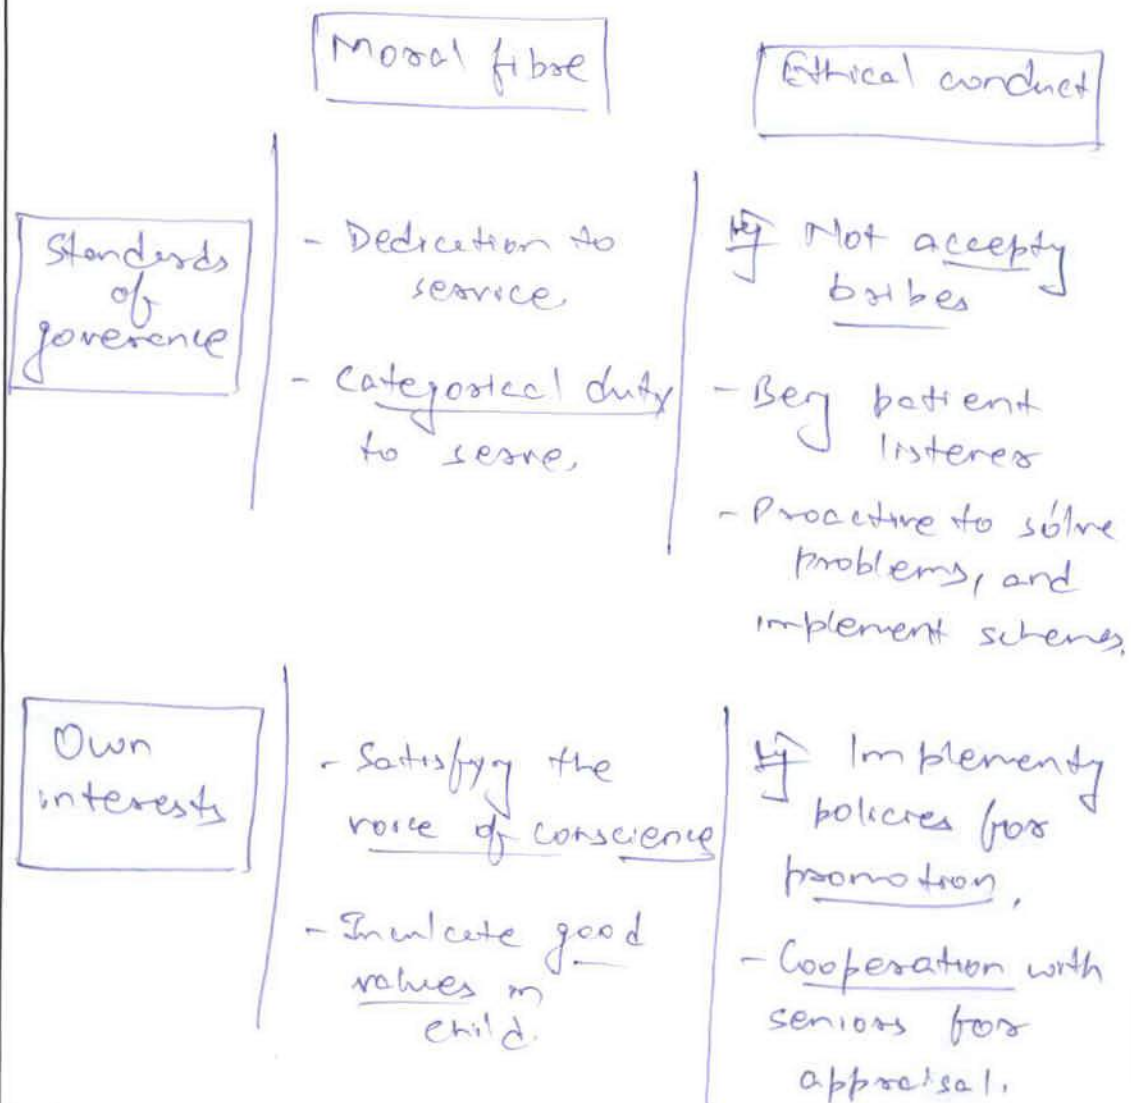 Moral fibre
Ethical conduct
Standards
of
goverence
- Dedication to
service.
- Categorical duty
to serve.
eg Not acceptg
bribes
- Beg patient
listener
- Proactive to solve
problems, and
implement schemes.
Own
interests
- Satisfyg the
voice of conscience
- Inculcate good
values in
child.
eg Implementg
policies for
promotion.
- Cooperation with
seniors for
appraisal.